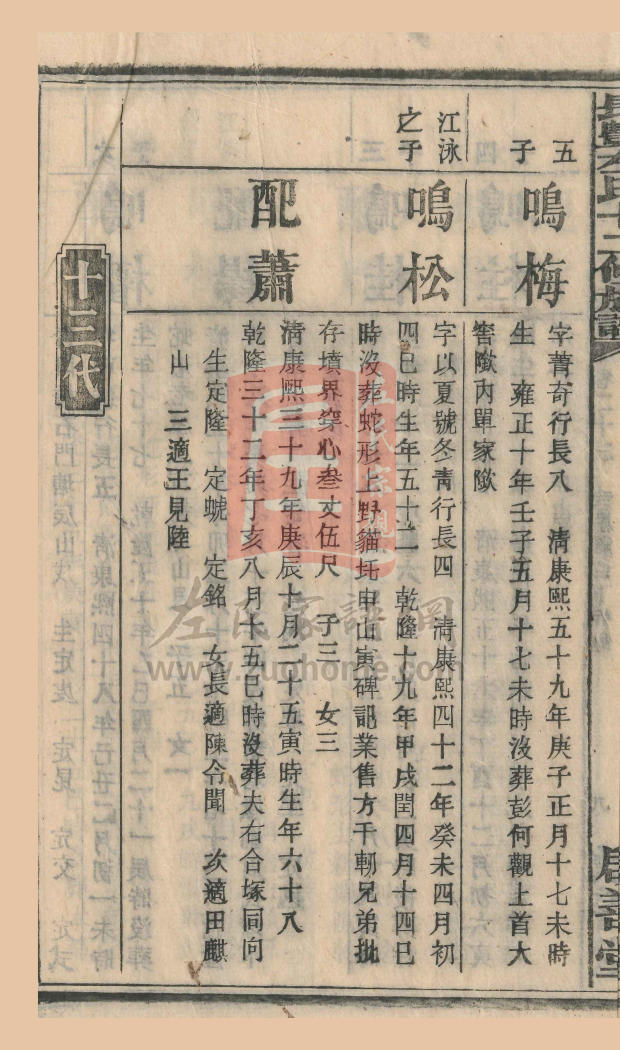 五
子
鳴梅
字菁奇行長八　清康熙五十九年庚子正月十七未時
生　雍正十年壬子五月十七未時沒葬彭何觀上首大
窖𡑞內單家𡑞
江泳
之子
鳴松
字以夏號冬青行長四　清康熙四十二年癸未四月初
四巳時生年五十二　乾隆十九年甲戌閏四月十四巳
時沒葬蛇形上野貓坵申山寅碑記業售方千軔兄弟批
存墳界穿心叁丈伍尺　子三　女三
配蕭
清康熙三十九年庚辰十月二十五寅時生年六十八
乾隆三十二年丁亥八月十五巳時沒葬夫右合塚同向
生定隆　定虩　定銘　女長適陳令聞　次適田麒
山　三適王見陸
十三代
左氏家譜網
www.zuohome.com